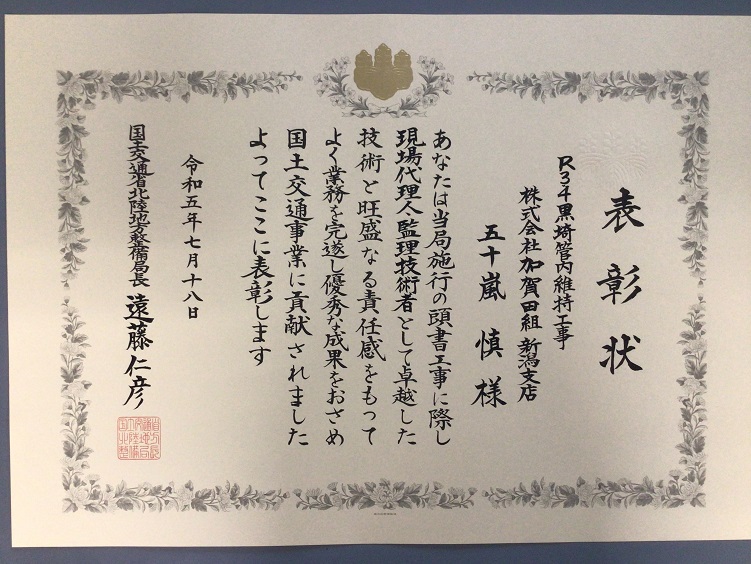 表彰状
R3・4黒埼管内維持工事
株式会社加賀田組 新潟支店
五十嵐 慎 様
あなたは当局施行の頭書工事に際し
現場代理人・監理技術者として卓越した
技術と旺盛なる責任感をもって
よく業務を完遂し優秀な成果をおさめ
国土交通事業に貢献されました
よってここに表彰します
令和五年七月十八日
国土交通省北陸地方整備局長 遠藤仁彦